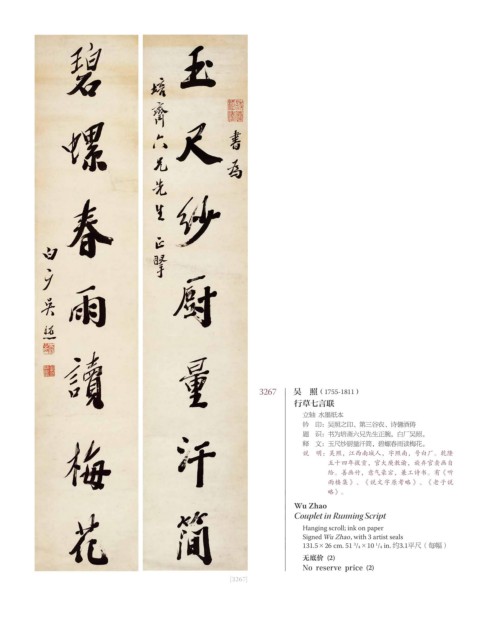 玉尺紗厨量汗簡
書為
培齋六兄先生正擘
碧螺春雨讀梅花
白厂吴照
3267
吴 照（1755-1811）
行草七言联
立轴 水墨纸本
钤 印：吴照之印、第三谷农、诗狂酒侍
题 识：书为培斋六兄先生正腕。白厂吴照。
释 文：玉尺纱厨量汗简，碧螺春雨读梅花。
说 明：吴照，江西南城人，字照南，号白厂。乾隆
五十四年拔贡，官大庾教谕，旋弃官卖画自
给。善画竹，意气豪宕，兼工诗书。有《听
雨楼集》、《说文字原考略》、《老子说
略》。
Wu Zhao
Couplet in Running Script
Hanging scroll; ink on paper
Signed Wu Zhao, with 3 artist seals
131.5 × 26 cm. 51 3/4 × 10 1/4 in. 约3.1平尺（每幅）
无底价 (2)
No reserve price (2)
[3267]